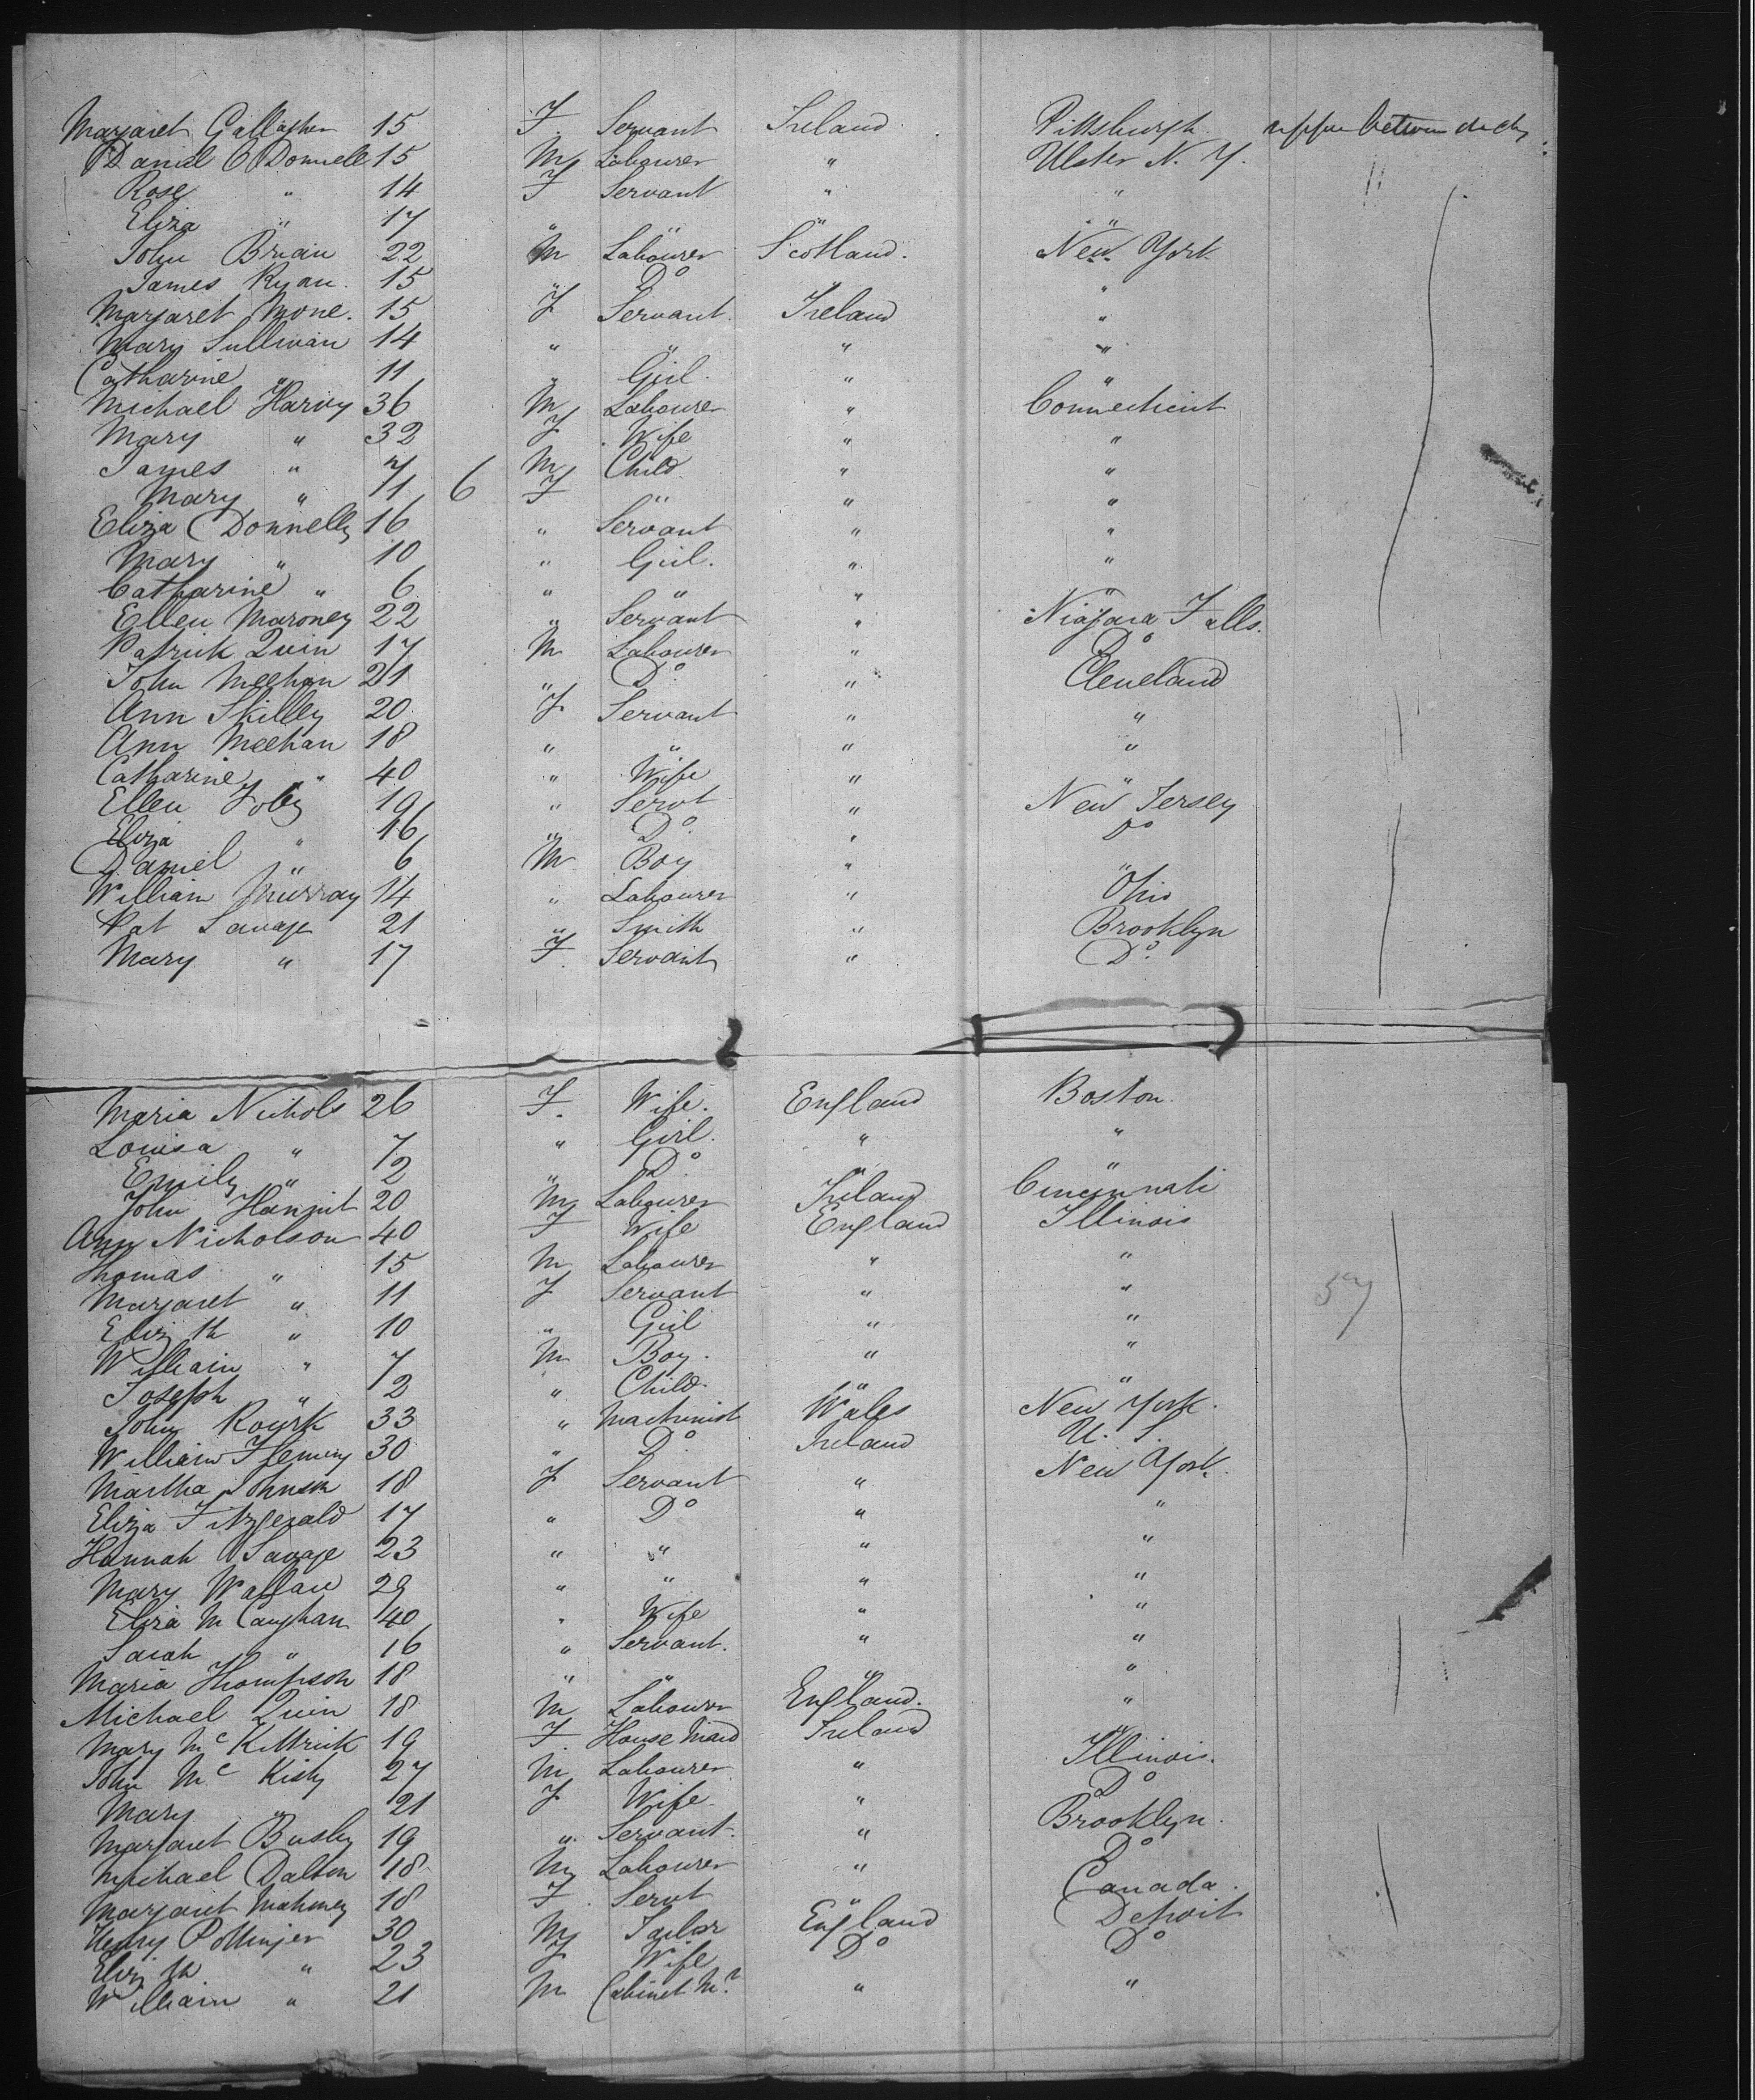 Margaret Gallagher 15 F. Servant Ireland Pittsburgh upper between decks
Daniel O Donnell 15 M Labourer " Ulster N. Y. "
Rose " 14 F Servant " "
Eliza " 17 " " " "
John Brian 22 M Labourer Scotland. New York
James Ryan. 15 " Do "
Margaret Mone. 15 F Servant. Ireland "
Mary Sullivan 14 " " " "
Catharine " 11 " Girl. " "
Michael Harvy 36 M Labourer " Connecticut
Mary " 32 F. Wife " "
James " 7 M Child " "
Mary " 1 6 F " " "
Eliza Donnelly 16 " Servant " "
Mary " 10 " Girl. " "
Catharine " 6 " " " "
Ellen Maroney 22 " Servant " Niagara Falls.
Patrick Quin 17 M Labourer " Do
John Meehan 21 " Do " Cleveland
Ann Skilly 20 F Servant " "
Ann Meehan 18 " " " "
Catharine " 40 " Wife " "
Ellen Foley 19 " Servt " New Jersey
Eliza " 16 " Do " Do
Daniel " 6 M Boy " "
William Murray 14 " Labourer " Ohio
Pat Savage 21 " Smith " Brooklyn
Mary " 17 F. Servant " Do.
Maria Nichols 26 F. Wife. England Boston.
Louisa " 7 " Girl. " "
Emily " 2 " Do. " "
John 20 M Labourer Ireland Cincinnati
Ann Nicholson 40 F Wife England Illinois
Thomas " 15 M Labourer " "
Margaret " 11 F Servant " " 57
Eliz th " 10 " Girl " "
William " 7 M Boy. " "
Joseph " 2 " Child. " "
John Rourk 33 " Machinist Wales New York.
William Fleming 30 " Do. Ireland U. S.
Martha Johnson 18 F Servant " New York.
Eliza Fitzgerald 17 " Do " "
Hannah Savage 23 " " " "
Mary Wallace 29 " " " "
Eliza McCaughan 40 " Wife " "
Sarah " 16 " Servant. " "
Maria Thompson 18 " " " "
Michael Quin 18 M Labourer England. "
Mary Mc Kittrick 19 F House Maid Ireland "
John Mc 27 M Labourer " Illinois.
Mary " 21 F Wife. " Do
Margaret Busby 19 " Servant. " Brooklyn.
Michael Dalton 18 M Labourer " Do
Margaret Mahoney 18 F. Servt " Canada.
Henry Pottinger 30 M Tailor England Detroit
Eliz th " 23 F Wife Do Do
William " 21 M Cabinet Mr. " "